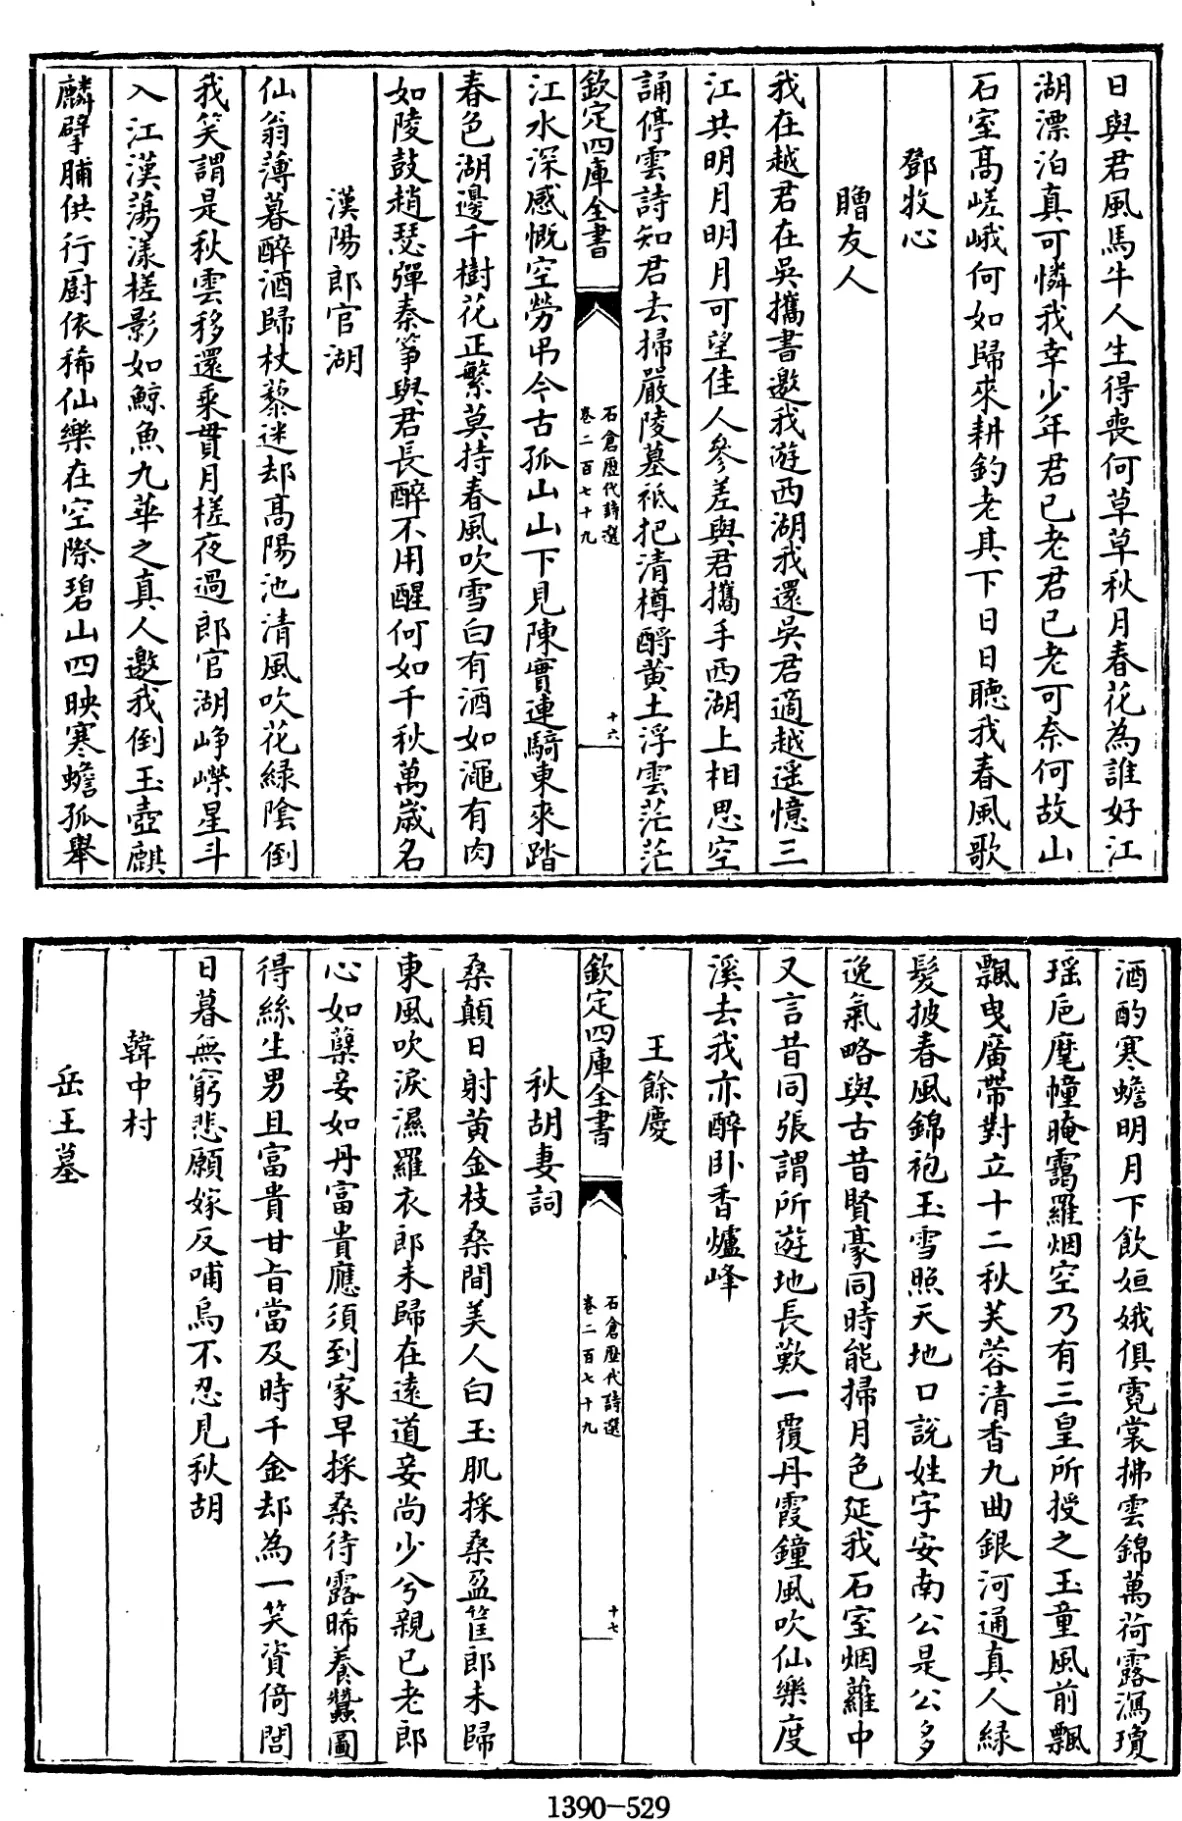 日與君風馬牛人生得喪何草草秋月春花為誰好江
湖漂泊真可憐我幸少年君已老君已老可奈何故山
石室髙嵯峨何如歸來耕釣老其下日日聽我春風歌
鄧牧心
贈友人
我在越君在吳攜書邀我遊西湖我還吳君適越遥憶三
江共明月明月可望佳人參差與君攜手西湖上相思空
誦停雲詩知君去掃嚴陵墓祗把清樽酹黄土浮雲茫茫
欽定四庫全書
石倉歴代詩選
卷二百七十九
十六
江水深感慨空勞弔今古孤山山下見陳實連騎東來踏
春色湖邊千樹花正繁莫持春風吹雪白有酒如澠有肉
如陵鼓趙瑟彈秦筝與君長醉不用醒何如千秋萬歳名
漢陽郎官湖
仙翁薄暮醉酒歸杖藜迷却髙陽池清風吹花緑陰倒
我笑謂是秋雲移還乘貫月槎夜過郎官湖崢嶸星斗
入江漢蕩漾槎影如鯨魚九華之真人邀我倒玉壺麒
麟擘脯供行厨依稀仙樂在空際碧山四映寒蟾孤舉
酒酌寒蟾明月下飲姮娥俱霓裳拂雲錦萬荷露瀉瓊
瑶巵麾幢晻靄羅烟空乃有三皇所授之玉童風前飄
飄曳廣帶對立十二秋芙蓉清香九曲銀河通真人緑
髪披春風錦袍玉雪照天地口說姓字安南公是公多
逸氣略與古昔賢豪同時能掃月色延我石室烟蘿中
又言昔同張謂所遊地長歎一覆丹霞鐘風吹仙樂度
溪去我亦醉卧香爐峰
王餘慶
欽定四庫全書
石倉歴代詩選
卷二百七十九
十七
秋胡妻詞
桑顛日射黄金枝桑間美人白玉肌採桑盈筐郎未歸
東風吹淚濕羅衣郎未歸在遠道妾尚少兮親已老郎
心如蘗妾如丹富貴應須到家早採桑待露晞養蠶圖
得絲生男且富貴甘㫖當及時千金却為一笑資倚閭
日暮無窮悲願嫁反哺烏不忍見秋胡
韓中村
岳王墓
1390-529